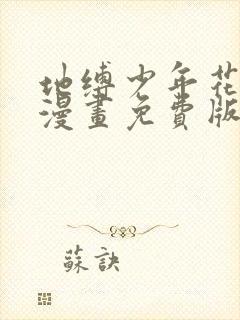 地缚少年花
漫畫免費版
蘇訣